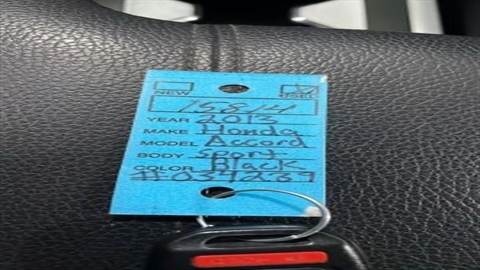 NEW USED
15814
YEAR 2013
MAKE Honda
MODEL Accord
BODY Sport
COLOR Black
#034239